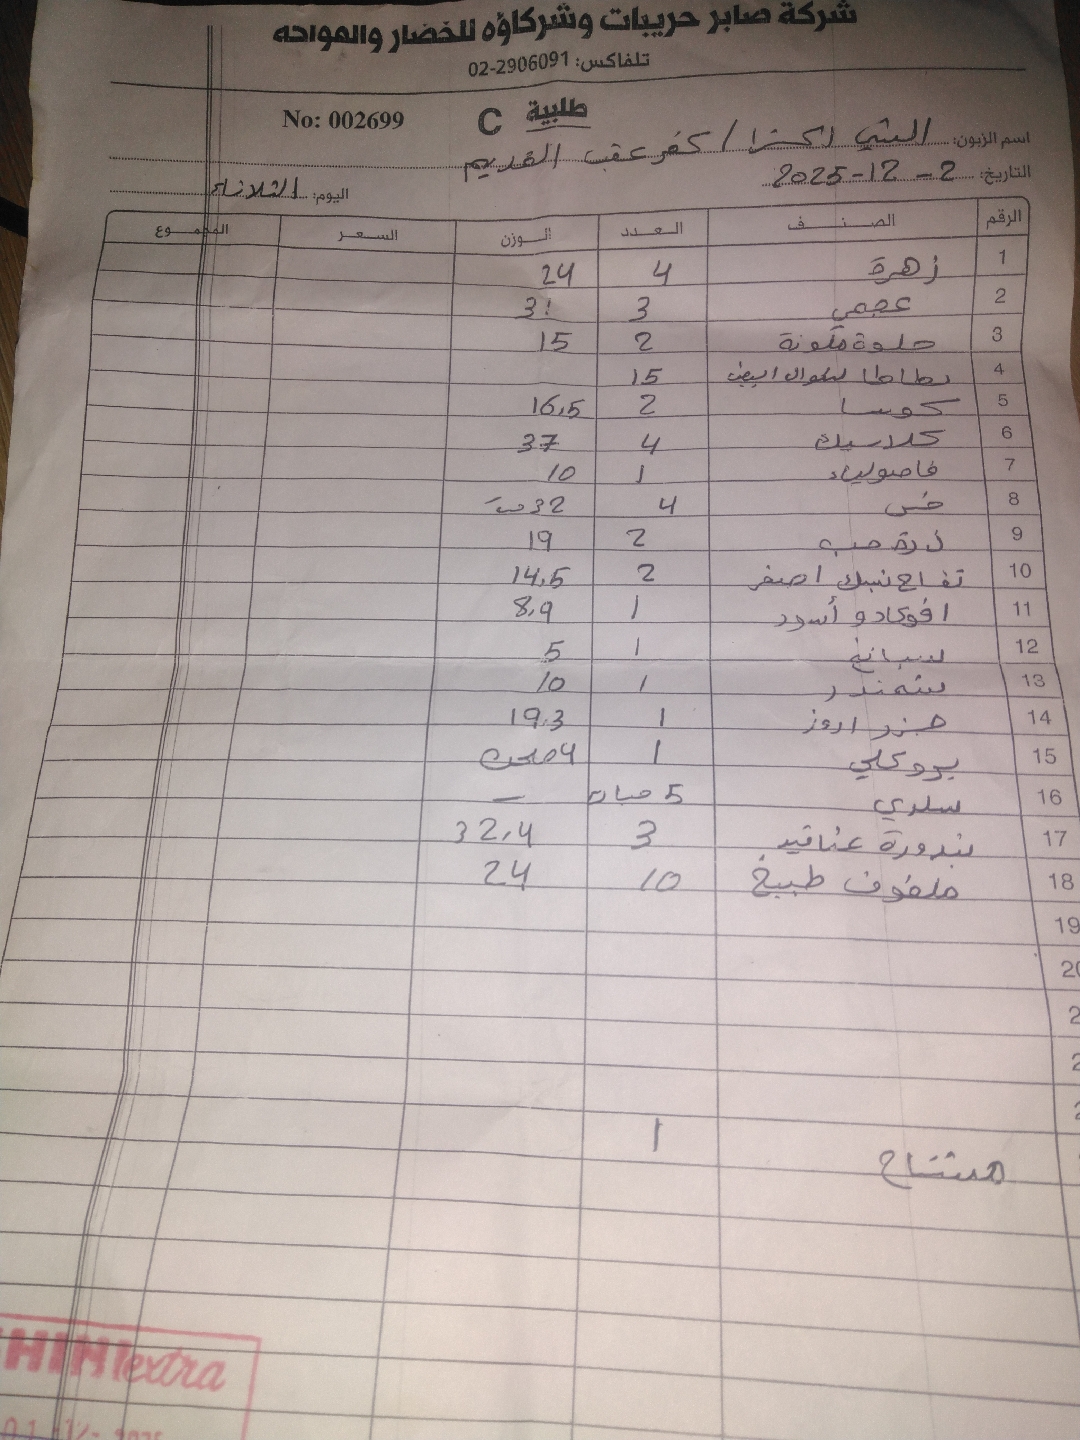 شركة صابر حريبات وشركاؤه للخضار والفواكه
تلفاكس: 02-2906091
طلبية C No: 002699
اسم الزبون: الشني اكسترا / كفر عقب القديم
التاريخ: 2-12-2025 اليوم: الثلاثاء
الرقم الصنف العدد الوزن السعر المجموع
1 زهرة 4 24
2 عجمي 3 31
3 حلوة ملونة 2 15
4 بطاطا ابيض 15
5 كوسا 2 16,5
6 كلاسيك 4 37
7 فاصولياء 1 10
8 خس 4 32
9 ذرة حب 2 19
10 تفاح اصفر 2 14,5
11 افوكادو أسود 1 8,9
12 سبانخ 1 5
13 شمندر 1 10
14 جزر 1 19,3
15 بروكلي 1 4
16 سلري 5 حبات –
17 بندورة عناقيد 3 32,4
18 ملفوف طبيخ 10 24
19
1
HINI extra